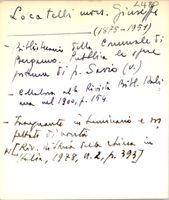 Locatelli mons. Giuseppe
(1875-1951)
- Bibliotecario della Comunale di
Bergamo. Pubblica le opere
di p. Savio (v.)
- Collabora alla Rivista Bibl. Itali
ana nel 1900, p. 154
- Insegnante in seminario e so
spettato di
[Riv. di Storia della Chiesa in
Italia, 1978, n. 2, p. 393]